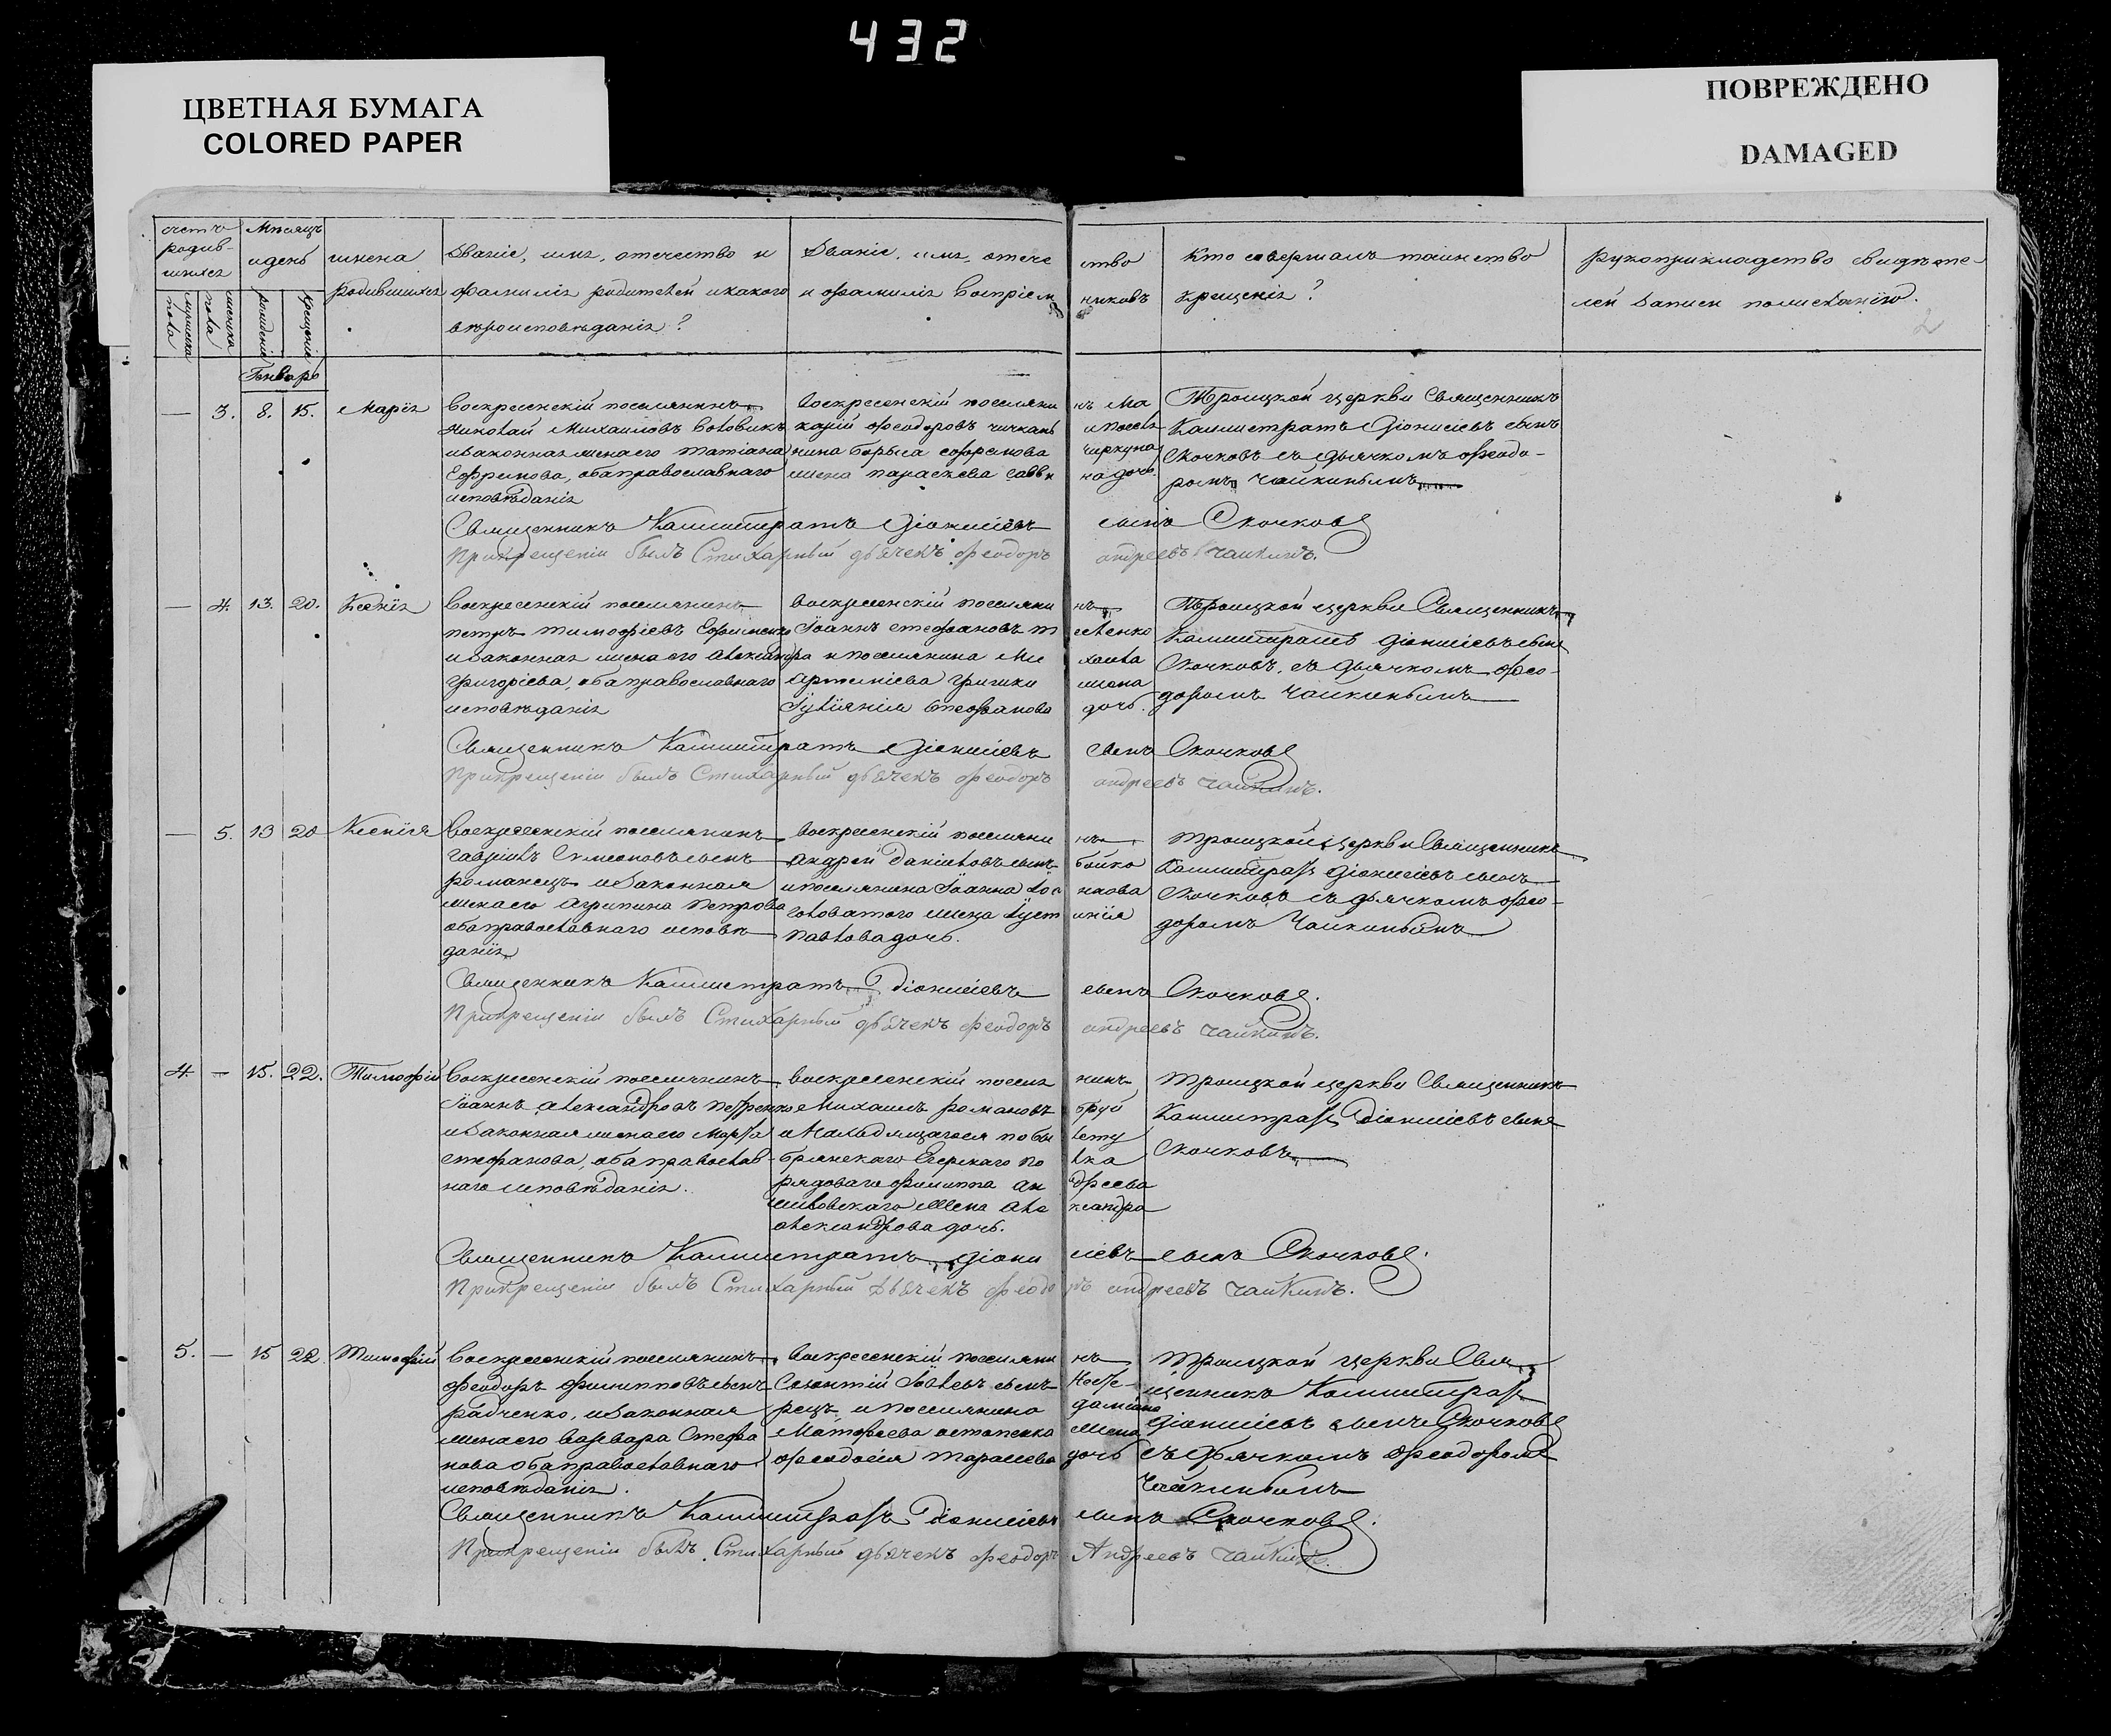 432
ЦВЕТНАЯ БУМАГА
COLORED PAPER
ПОВРЕЖДЕНО
DAMAGED
счетъ родив-шихся
мужеска пола
женска пола
Мѣсяцъ и день
рожденія
крещенія
имена родившихся
Званіе, имя, отечество и
фамилія родителей и какого
вѣроисповѣданія?
Званіе, имя, отече ство
и фамилія воспріем никовъ
Кто совершалъ таинство
крещенія?
рукоприкладство свидѣте-
лей записи по желанію.
2
Генварь
— 3. 8. 15. Марія
Воскресенскій поселянинъ
Николай Михаиловъ
и законная жена его Татіана
Ефремова, оба православнаго
исповѣданія
Воскресенскій поселяни нъ Ма
карій Феодоровъ
жена Параскева Савви на дочь
Троицкой церкви Священникъ
Каллистратъ Діонисіевъ сынъ
Скочковъ съ дьячкомъ Феодо-
ромъ Чайкинымъ
Священникъ Каллистратъ Діонисіевъ сынъ Скочковъ
При крещеніи былъ Стихарный дьячекъ Феодоръ андреевъ Чайкинъ.
— 4. 13. 20. Ксенія
Воскресенскій поселянинъ
Петръ Тимофіевъ Ефименко
и законная жена его Александра
Григоріева, оба православнаго
исповѣданія
Воскресенскій поселяни нъ
Іоаннъ Стефановъ
и поселянина Ми хаила
Артеміева Григики жена
Іуліянія Стефанова дочь.
Троицкой церкви Священникъ
Каллистратъ Діонисіевъ сынъ
Скочковъ, съ дьячкомъ Фео-
доромъ Чайкинымъ
Священникъ Каллистратъ Діонисіевъ сынъ Скочковъ
При крещеніи былъ Стихарный дьячекъ Феодоръ андреевъ Чайкинъ.
— 5. 13 20 Ксенія
Воскресенскій поселянинъ
Гавріилъ Симеоновъ сынъ
Романецъ и законная
жена его Агрипина Петрова
оба православнаго исповѣ
данія
Воскресенскій поселяни нъ
Андрей Даніиловъ сынъ бойко
и поселянина Іоанна
жена Іуст инія
Павлова дочь.
Троицкой церкви Священникъ
Каллистратъ Діонисіевъ сынъ
Скочковъ съ дьячкомъ Фео-
доромъ Чайкинымъ
Священникъ Каллистратъ Діонисіевъ сынъ Скочковъ.
При крещеніи былъ Стихарный дьячекъ Феодоръ андреевъ Чайкинъ.
4 — 15. 22. Тимофій
Воскресенскій поселянинъ
Іоаннъ Александровъ Петренко
и законная жена его Марфа
Стефанова, оба православ-
наго исповѣданія.
Воскресенскій поселя нинъ
Михаилъ Романовъ
Брянскаго Егерскаго По лка
рядоваго Филиппа Ан дреева
жена Але ксандра
Александрова дочь.
Троицкой церкви Священникъ
Каллистратъ Діонисіевъ сынъ
Скочковъ
Священникъ Каллистратъ Діони сіевъ сынъ Скочковъ.
При крещеніи былъ Стихарный Дьячекъ Феодо ръ андреевъ Чайкинъ.
5. — 15 22 Тимофій
Воскресенскій поселянинъ
Феодоръ Филипповъ сынъ
Радченко, и законная
жена его Варвара Стефа
нова оба православнаго
исповѣданія.
Воскресенскій поселяни нъ
Созонтій Іовлевъ сынъ
рецъ и поселянина даміана
Матфеева Остапенка жена
Феодосія Тарасіева дочь
Троицкой церкви Свя
щенникъ Каллистратъ
Діонисіевъ сынъ Скочковъ
съ дьячкомъ Феодоромъ
Чайкинымъ
Священникъ Каллистратъ Діонисіевъ сынъ Скочковъ.
При крещеніи былъ Стихарный дьячекъ Феодоръ Андреевъ Чайкинъ.